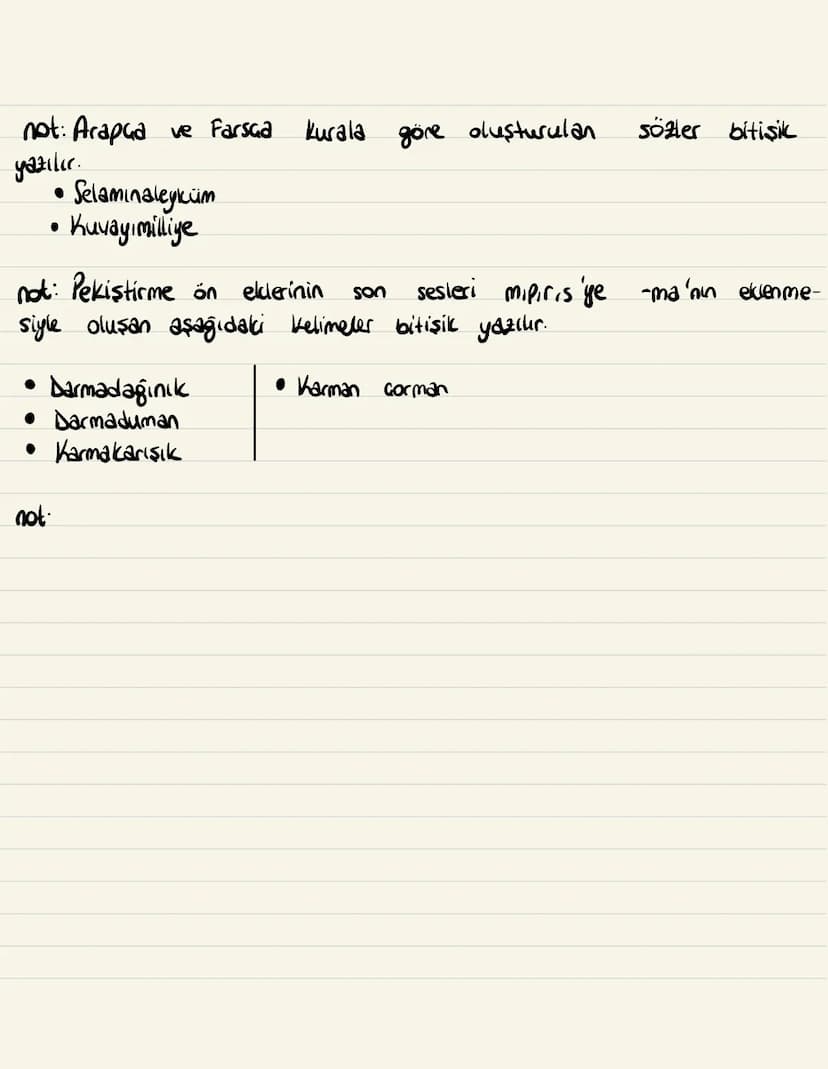 not: Arapça ve Farsça kurala göre oluşturulan sözler bitişik
yazılır.
• Selamınaleyküm
• Kuvayımilliye
not: Pekiştirme ön eklerinin son sesleri m,p,r,s'ye -ma'nın eklenme-
siyle oluşan aşağıdaki kelimeler bitişik yazılır.
• Darmadağınık
• Darmaduman
• Karmakarışık
• Karman çorman
not: